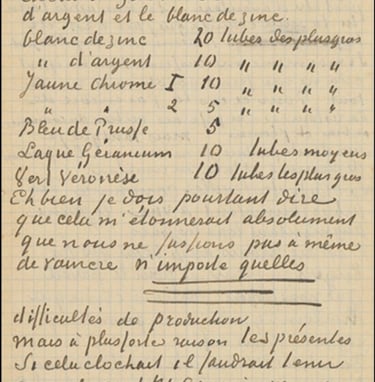 d'argent et le blanc de zinc.
blanc de zinc 20 tubes des plus gros
" d'argent 10 " " " "
Jaune chrome I 10 " " " "
" " 2 5 " " " "
Bleu de Prusse 5
Laque Géranium 10 tubes moyens
Vert Véronèse 10 tubes les plus gros
Eh bien je dois pourtant dire
que cela m'étonnerait absolument
que nous ne fussions pas à même
de vaincre n'importe quelles
difficultés de production
mais à plus forte raison les présentes
Si cela clochait il faudrait tenir